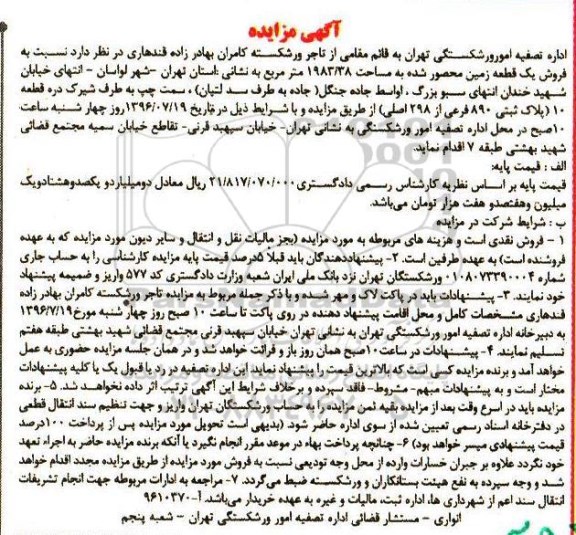 آگهی مزایده
اداره تصفیه امورورشکستگی تهران به قائم مقامی از تاجر ورشکسته کامران بهادر زاده قندهاری در نظر دارد نسبت به
فروش یک قطعه زمین محصور شده به مساحت ۱۹۸۳/۳۸ متر مربع به نشانی :استان تهران –شهر لواسان – انتهای خیابان
شهید خندان انتهای سبو بزرگ ، اواسط جاده جنگل( جاده به طرف سد لتیان) ، سمت چپ به طرف شیرک دره قطعه
۱۰ (پلاک ثبتی ۸۹۰ فرعی از ۲۹۸ اصلی) از طریق مزایده و با شرایط ذیل در تاریخ ۱۳۹۶/۰۷/۱۹روز چهار شنبه ساعت
۱۰صبح در محل اداره تصفیه امور ورشکستگی به نشانی تهران- خیابان سپهبد قرنی- تقاطع خیابان سمیه مجتمع قضائی
شهید بهشتی طبقه ۷ اقدام نماید.
الف : قیمت پایه:
قیمت پایه بر اساس نظریه کارشناس رسمی دادگستری ۲۱/۸۱۷/۰۷۰/۰۰۰ ریال معادل دومیلیاردو یکصدوهشتادویک
میلیون وهفتصدو هفت هزار تومان می‌باشد.
ب : شرایط شرکت در مزایده
۱ – فروش نقدی است و هزینه های مربوطه به مورد مزایده (بجز مالیات نقل و انتقال و سایر دیون مورد مزایده که به عهده
فروشنده است) به عهده طرفین است. ۲- پیشنهاددهندگان باید قبلا ۵درصد قیمت پایه مزایده کارشناسی را به حساب جاری
شماره ۰۱۰۸۰۷۳۳۹۰۰۰۴ ورشکستگان تهران نزد بانک ملی ایران شعبه وزارت دادگستری کد ۵۷۷ واریز و ضمیمه پیشنهاد
خود نمایند. ۳- پیشنهادات باید در پاکت لاک و مهر شده و با ذکر جمله مربوط به مزایده تاجر ورشکسته کامران بهادر زاده
قندهاری مشخصات کامل و محل اقامت پیشنهاد دهنده در روی پاکت تا ساعت ۱۰ صبح روز چهار شنبه مورخ۱۳۹۶/۷/۱۹
به دبیرخانه اداره تصفیه امور ورشکستگی تهران به نشانی تهران خیابان سپهبد قرنی مجتمع قضائی شهید بهشتی طبقه هفتم
تسلیم نمایند. ۴- پیشنهادات در ساعت۱۰صبح همان روز باز و قرائت خواهد شد و در همان جلسه مزایده حضوری به عمل
خواهد آمد و برنده مزایده کسی است که بالاترین قیمت را پیشنهاد نماید این اداره تصفیه در رد یا قبول یک یا کلیه پیشنهادات
مختار است و به پیشنهادات مبهم- مشروط- فاقد سپرده و برخلاف شرایط این آگهی ترتیب اثر داده نخواهد شد. ۵- برنده
مزایده باید در اسرع وقت بعد از مزایده بقیه ثمن مزایده را به حساب ورشکستگان تهران واریز و جهت تنظیم سند انتقال قطعی
در دفترخانه اسناد رسمی تعیین شده از سوی اداره حاضر شود. (بدیهی است تحویل مورد مزایده پس از پرداخت ۱۰۰درصد
قیمت پیشنهادی میسر خواهد بود) ۶- چنانچه پرداخت بهاء در موعد مقرر انجام نگیرد یا آنکه برنده مزایده حاضر به اجراء تعهد
خود نگردد علاوه بر جبران خسارات وارده از محل وجه تودیعی نسبت به فروش مورد مزایده از طریق مزایده مجدد اقدام خواهد
شد و وجه سپرده به نفع هیئت بستانکاران و ورشکسته ضبط می‌گردد. ۷- مراجعه به ادارات مربوطه جهت انجام تشریفات
انتقال سند اعم از شهرداری ها، اداره ثبت، مالیات و غیره به عهده خریدار می‌باشد. آ-۹۶۱۰۳۷۰
انواری – مستشار قضائی اداره تصفیه امور ورشکستگی تهران – شعبه پنجم